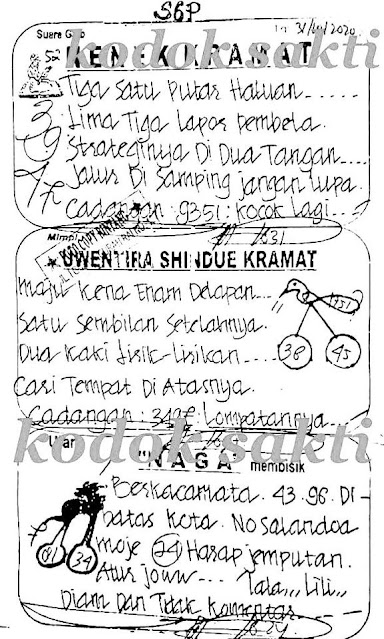 SGP
31/10/2020
Suara Gaib
KENEKI RAMAT
kodok sakti
Tiga Satu Putar Haluan
Lima Tiga Lapor Pembela.
Strateginya Di Dua Tangan
Jalur Di Samping jangan Lupa.
Cadangan : 9351 : Kocok Lagi
1831
Mimpi
UWENTIRA SHINDUE KRAMAT
Maju Kena Enam Delapan
Satu Sembilan Setelahnya.
Dua Kaki Lirik-Lirikan
Cari Tempat Di Atasnya.
38 45
Cadangan : Lompatannya
kodok sakti
"NAGA"
membisik
Berkacamata. 43. 96. Di-
batas Kota. No Salandoa
moje 24 Harap jemputan.
Atur joww--- Lala,,, Lili,,
34
Diam Dan Tidak Komentar